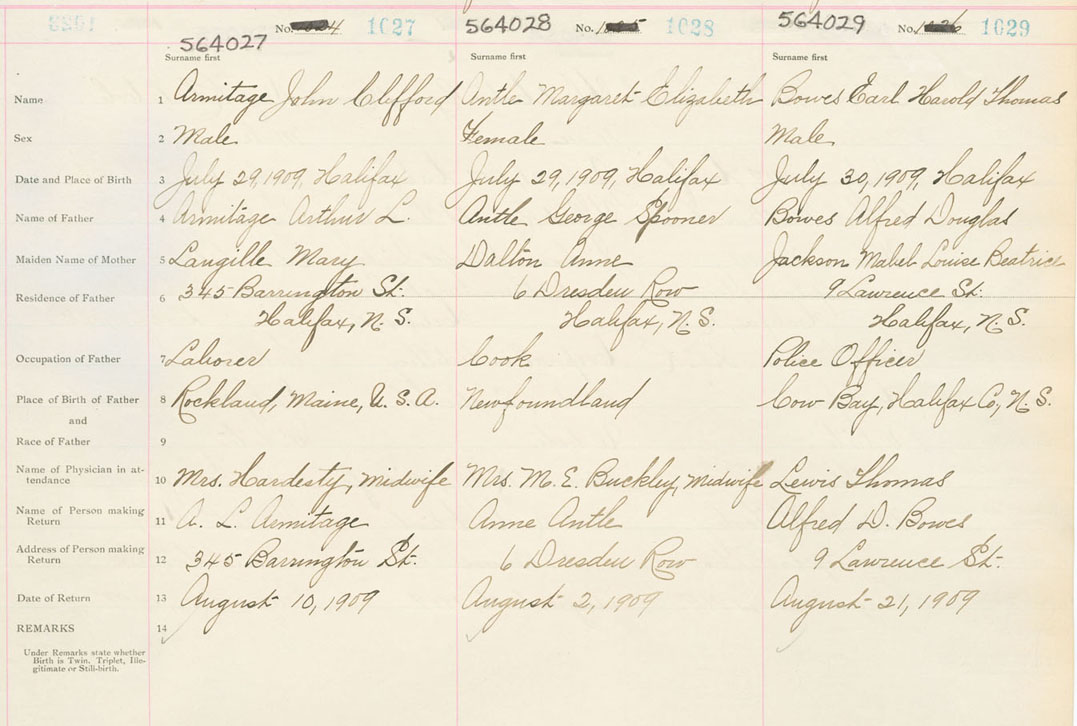 No. 1027 564028 No. 1028 564029 No. 1029
564027
Surname first Surname first Surname first
Name 1 Armitage John Clifford Antle Margaret Elizabeth Bowes Earl Harold Thomas
Sex 2 Male Female Male
Date and Place of Birth 3 July 29, 1909, Halifax July 29, 1909, Halifax July 30, 1909, Halifax
Name of Father 4 Armitage Arthur L. Antle George Spooner Bowes Alfred Douglas
Maiden Name of Mother 5 Langille Mary Dalton Anne Jackson Mabel Louise Beatrice
Residence of Father 6 345 Barrington St. 6 Dresden Row 9 Lawrence St.
Halifax, N. S. Halifax, N. S. Halifax, N. S.
Occupation of Father 7 Laborer Cook Police Officer
Place of Birth of Father 8 Rockland, Maine, U. S. A. Newfoundland Cow Bay, Halifax Co., N. S.
and
Race of Father 9
Name of Physician in at-
tendance 10 Mrs. Hardesty, Midwife Mrs. M. E. Buckley, Midwife Lewis Thomas
Name of Person making
Return 11 A. L. Armitage Anne Antle Alfred D. Bowes
Address of Person making
Return 12 345 Barrington St. 6 Dresden Row 9 Lawrence St.
Date of Return 13 August 10, 1909 August 2, 1909 August 21, 1909
REMARKS 14
Under Remarks state whether
Birth is Twin, Triplet, Ille-
gitimate or Still-birth.